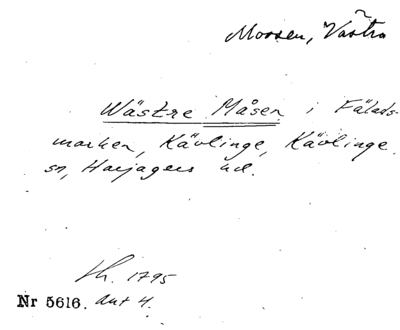 Mossen, Västra
Wästre Måsen i Fälads-
marken, Kävlinge, Kävlinge
sn, Harjagers hd.
Lh. 1795
Nr 5616. Akt 4.